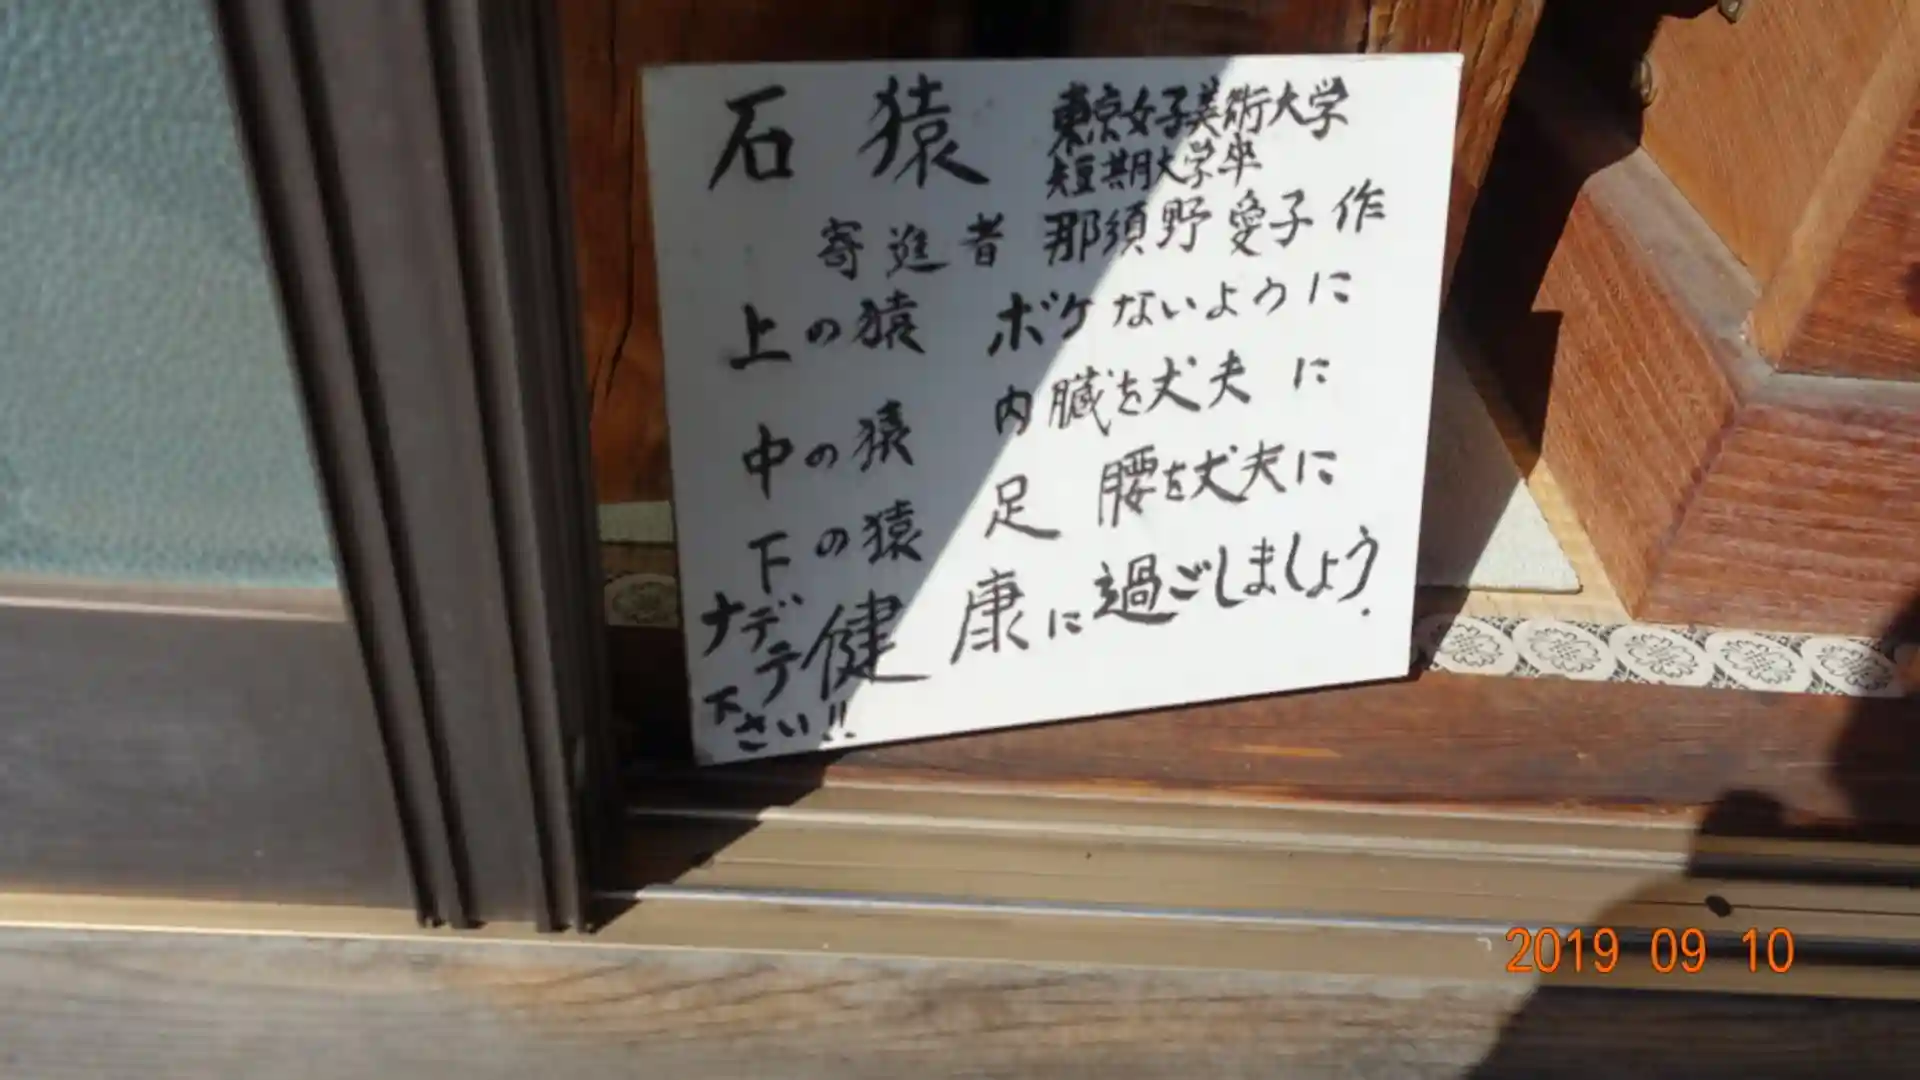 石猿 東京女子美術大学
短期大学卒
寄進者 那須野愛子作
上の猿 ボケないように
中の猿 内臓を丈夫に
下の猿 足 腰を丈夫に
健康に過ごしましょう.
ナデ
テ
下
さい!!
2019 09 10